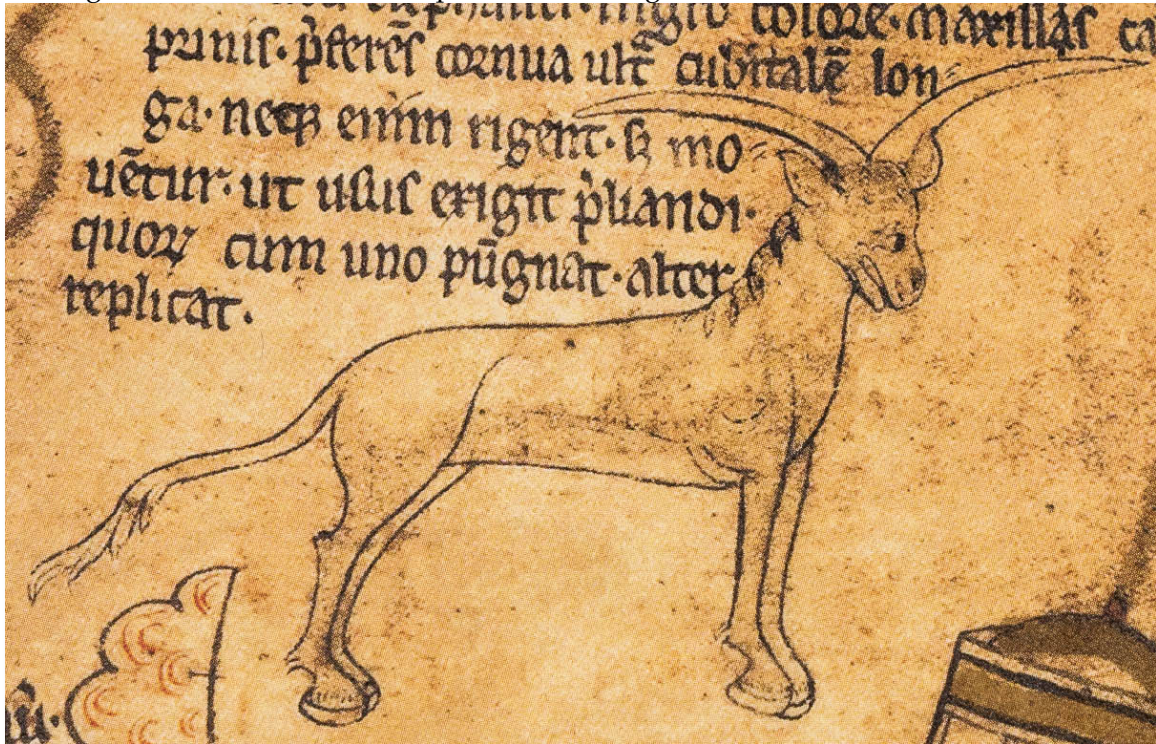 elephanti · nigro colore · maxillas ca
prinis · p̄ferēs cornua ult̄ cubitalē lon⸗
ga · neqꝫ enim rigent · sꝫ mo⸗
uētur · ut usus exigit p̄liandi ·
quoꝝ cum uno pūgnat · alter
replicat ·